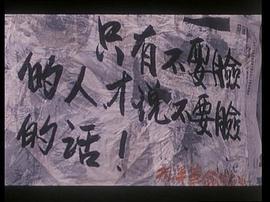 只有不要臉
的人才说不要臉
的话！